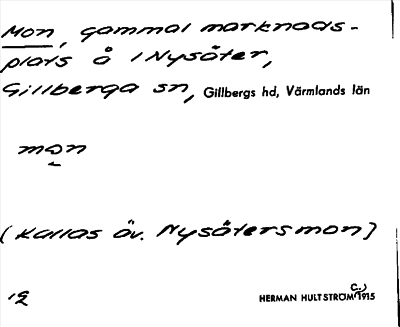 Mon, gammal marknads-
plats å 1 Nysäter,
Gillberga sn, Gillbergs hd, Värmlands län
mon
(Kallas äv. Nysätersmon)
12
HERMAN HULTSTRÖM (C.) 1915